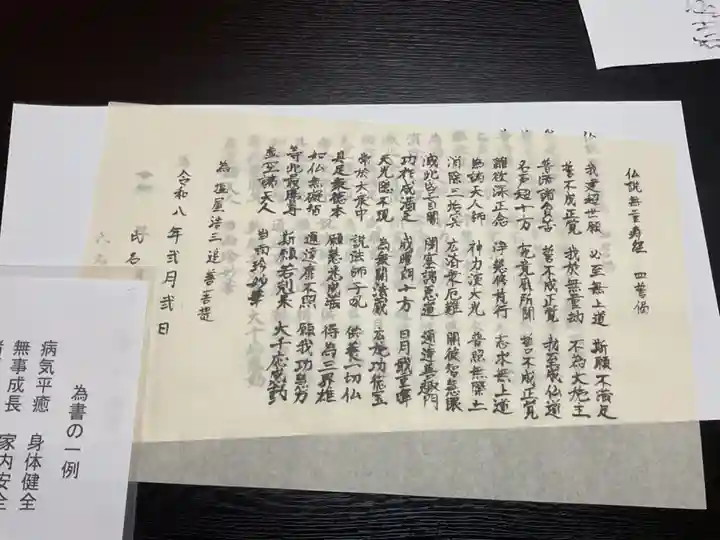 仏説無量寿経 四誓偈
我建超世願 必至無上道 斯願不満足
誓不成正覚 我於無量劫 不為大施主
普済諸貧苦 誓不成正覚 我至成仏道
名声超十方 究竟靡所聞 誓不成正覚
離欲深正念 浄慧修梵行 志求無上道
為諸天人師 神力演大光 普照無際土
消除三垢冥 広済衆厄難 開彼智慧眼
滅此昏盲闇 閉塞諸悪道 通達善趣門
功祚成満足 威曜朗十方 日月戢重暉
天光隠不現 為衆開法蔵 広施功徳宝
常於大衆中 説法師子吼 供養一切仏
具足衆徳本 願慧悉成満 得為三界雄
如仏無礙智 通達靡不照 願我功慧力
等此最勝尊 斯願若剋果 大千応感動
虚空諸天人 当雨珍妙華
為 塩屋浩三 追善菩提
令和八年 弐月 弐日
氏名
為書の一例
病気平癒 身体健全
無事成長 家内安全